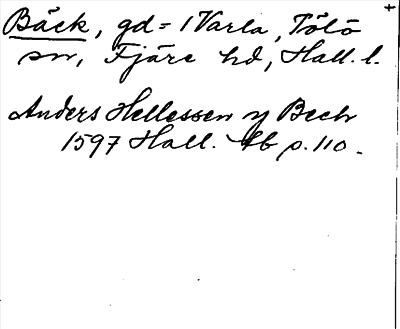 Bäck, gd = i Varla, Tölö
sn, Fjäre hd, Hall. l.
Anders Hellessen y Bech
1597 Hall. Hb p. 110.